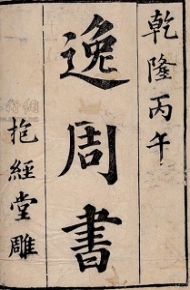 乾隆丙午
逸周書
抱經堂雕